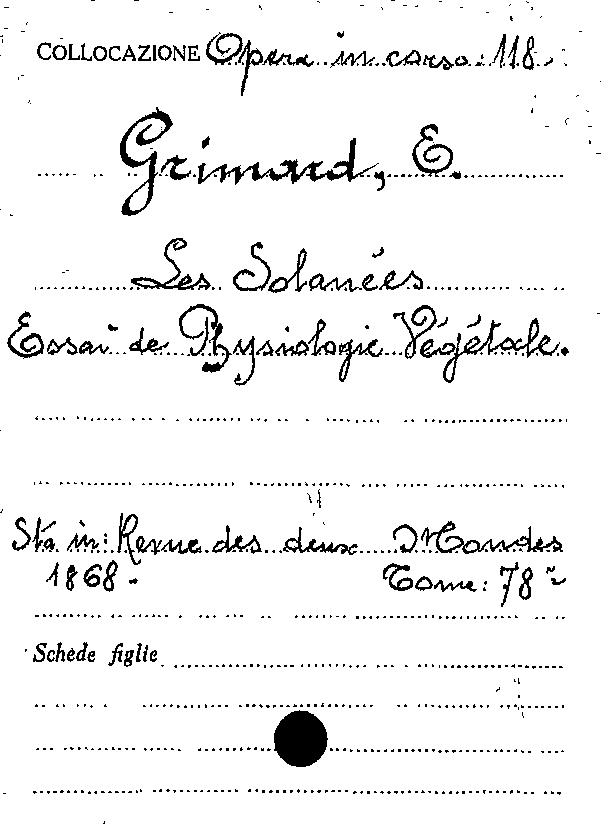 COLLOCAZIONE Opera in corso: 118.
Grimard, E.
Les Solanées
Essai de Physiologie Végétale.
Sta in: Revue des deux Mondes
1868. Tome: 78
Schede figlie